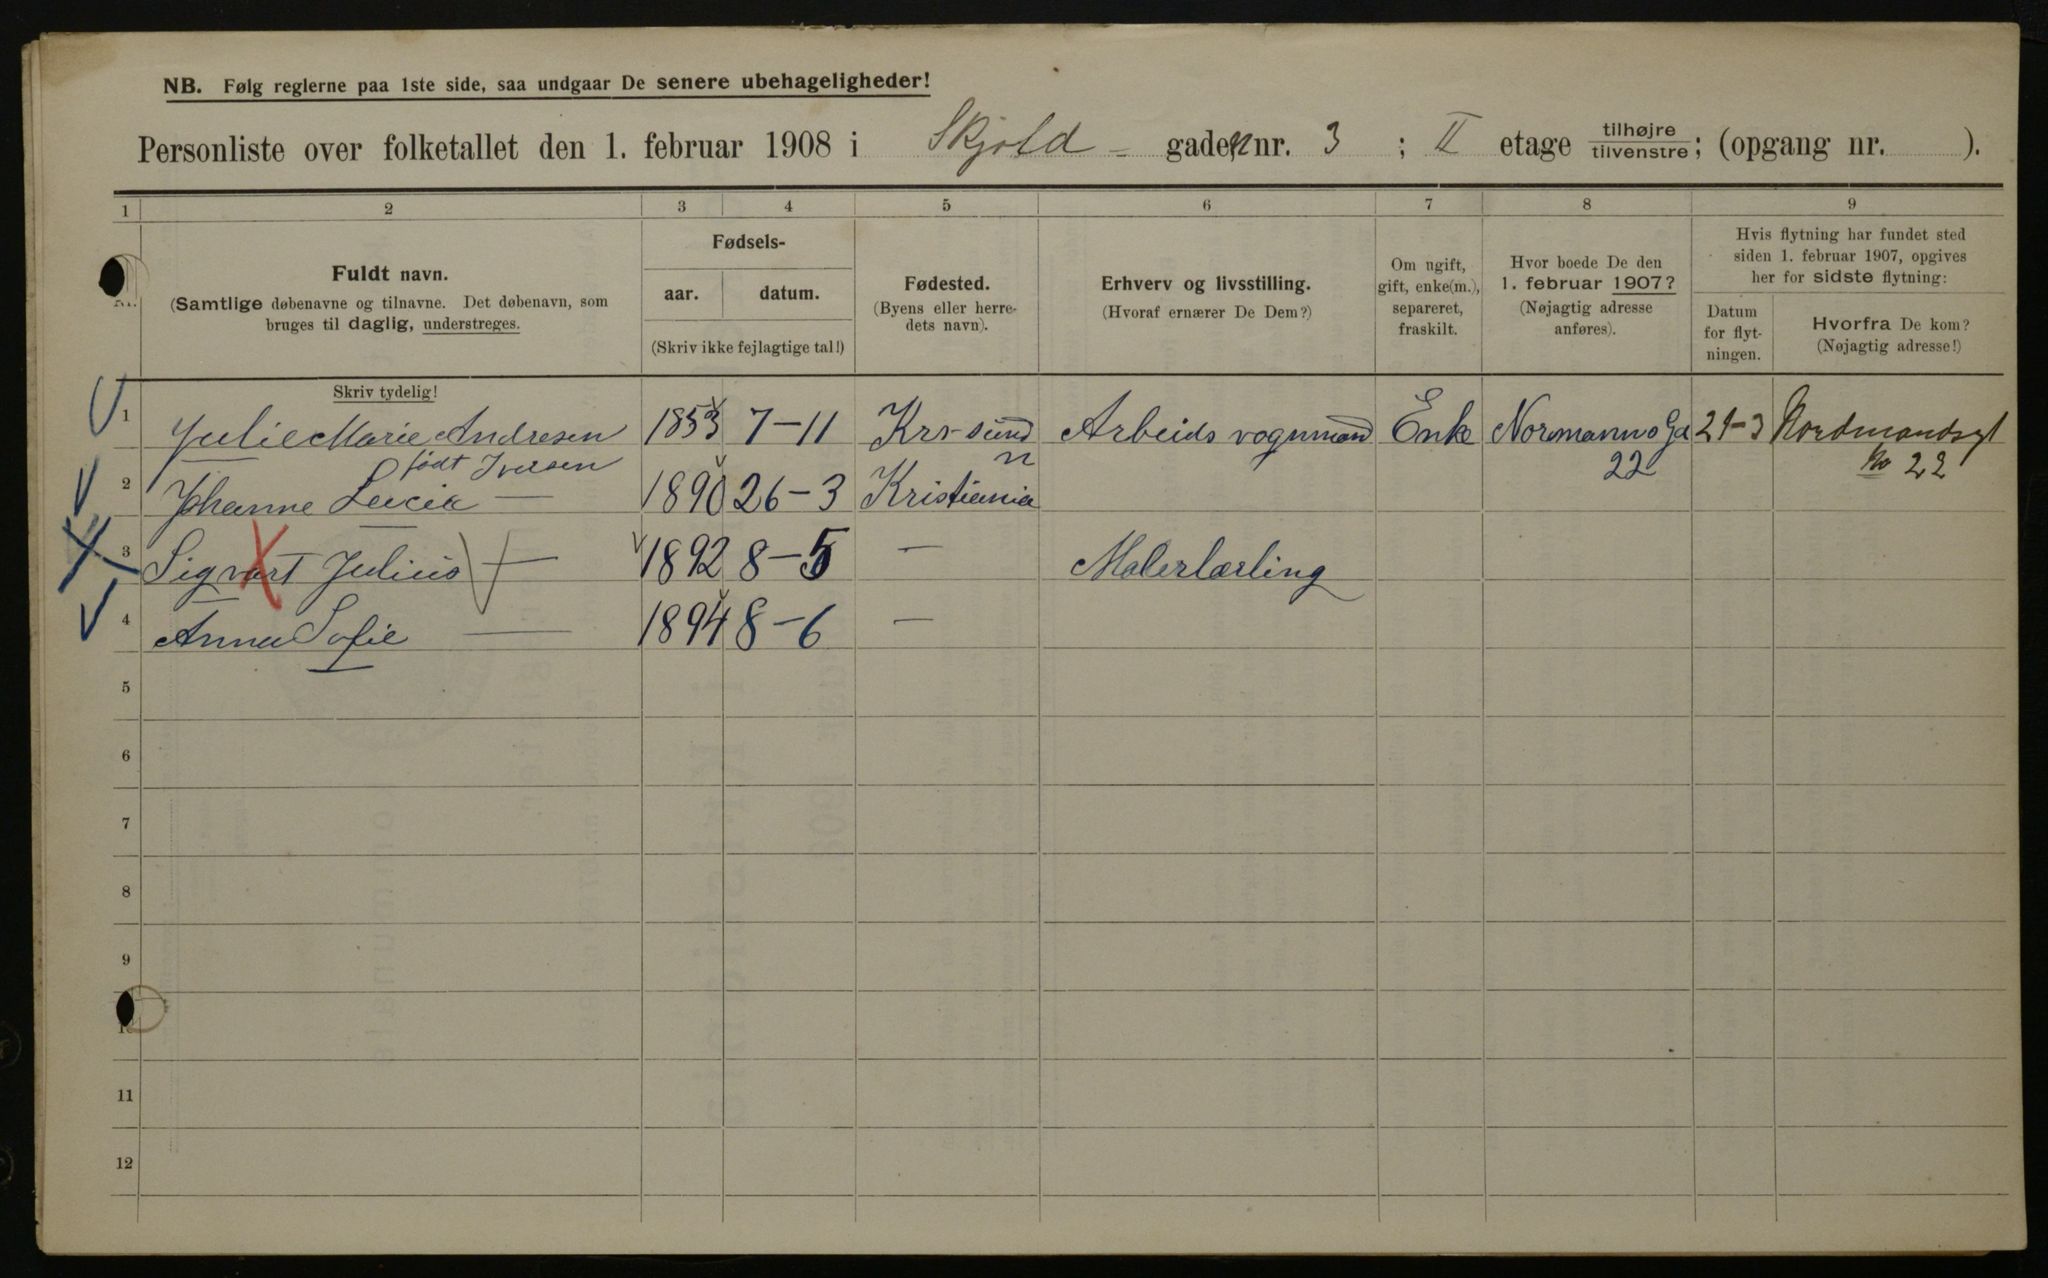 NB. Følg reglerne paa 1ste side, saa undgaar De senere ubehageligheder!
Personliste over folketallet den 1. februar 1908 i Skjold - gaden nr. 3 ; II etage tilhøjre/tilvenstre; (opgang nr. ).
1 2 3 4 5 6 7 8 9
Fuldt navn.
(Samtlige døbenavne og tilnavne. Det døbenavn, som
bruges til daglig, understreges.
Skriv tydelig!
Fødsels-
aar. datum.
(Skriv ikke fejlagtige tal!)
Fødested.
(Byens eller herre-
dets navn).
Erhverv og livsstilling.
(Hvoraf ernærer De Dem?)
Om ugift,
gift, enke(m.),
separeret,
fraskilt.
Hvor boede De den
1. februar 1907?
(Nøjagtig adresse
anføres).
Hvis flytning har fundet sted
siden 1. februar 1907, opgives
her for sidste flytning:
Datum
for flyt-
ningen.
Hvorfra De kom?
(Nøjagtig adresse!)
1 Julie Marie Andresen 1853 7-11 Kr-sund Arbeids vognmand Enke Normanns Ga 24-3 Nordmandsgt
født Iversen n 22 No 22
2 Johanne Lucia — 1890 26-3 Kristiania
3 Sigvart Julius — 1892 8-5 — Malerlærling
4 Anna Sofie — 1894 8-6 —
5
6
7
8
9
10
11
12